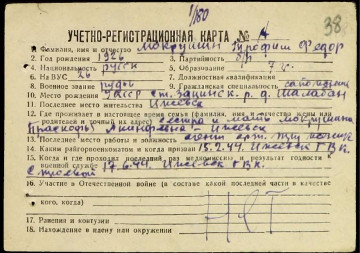 1/150
38
УЧЕТНО-РЕГИСТРАЦИОННАЯ КАРТА № 4
1 Фамилия, имя и отчество Мокрушин Трофим Федор
2. Год рождения 1926 3. Партийность б/п
4. Национальность русск 5. Образование 7 кл
6. На ВУС 26 7. Должностная квалификация
8. Военное звание рядов 9. Гражданская специальность
10. Место рождения ст.
11. Последнее место жительства Ижевск
12. Где проживает в настоящее время семья (фамилия, имя и отчество жены или
родителей и точный их адрес) Сестра Мокрушина
Ижевск
13. Последнее место работы и должность
14. Каким райгорвоенкоматом и когда призван 15.2.44. Ижевск ГВК.
15. Когда и где проходил последний раз медкомиссию и результат годности к
военной службе 17.6.44. Ижевск ГВК.
с строевой
16. Участие в Отечественной войне (в составе какой последней части в качестве
кого, когда) Нет
17. Ранения и контузии
18. Нахождение в плену или окружении